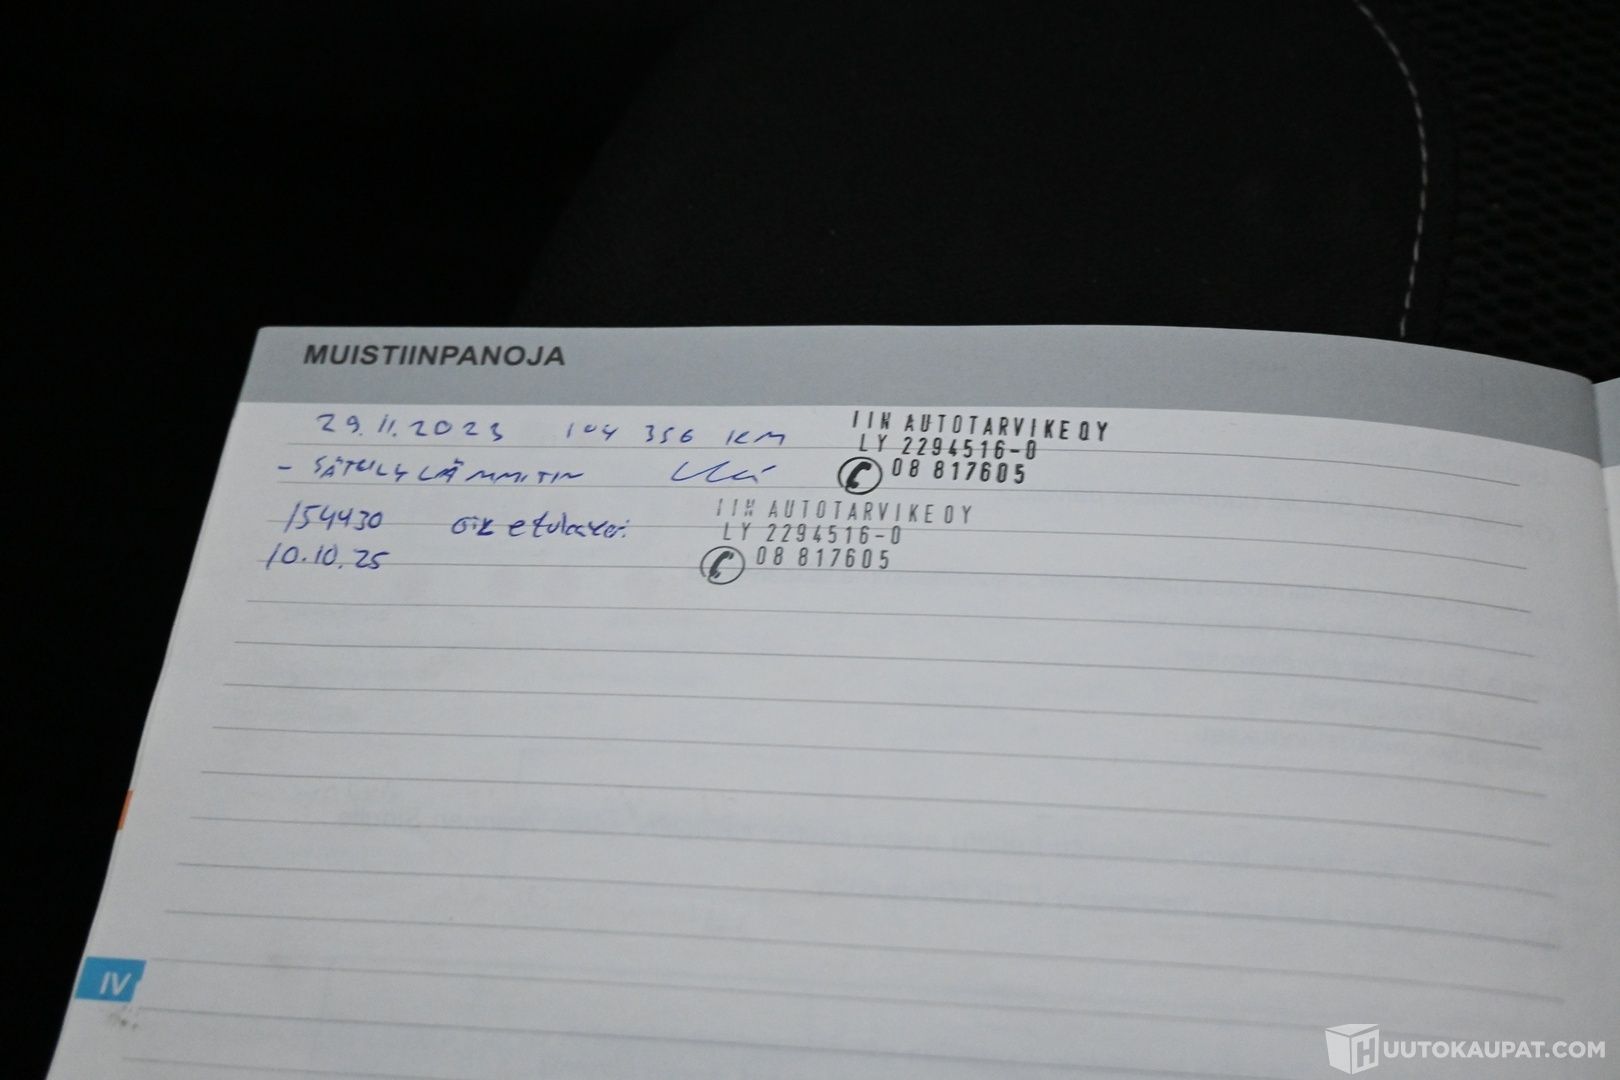 MUISTIINPANOJA
29.11.2023 104 356 KM
IIN AUTOTARVIKE OY
LY 2294516-0
08 817605
- SÄTEILYLÄMMITIN
154430 oik etulaakeri
10.10.25
IIN AUTOTARVIKE OY
LY 2294516-0
08 817605
IV
HUUTOKAUPAT.COM